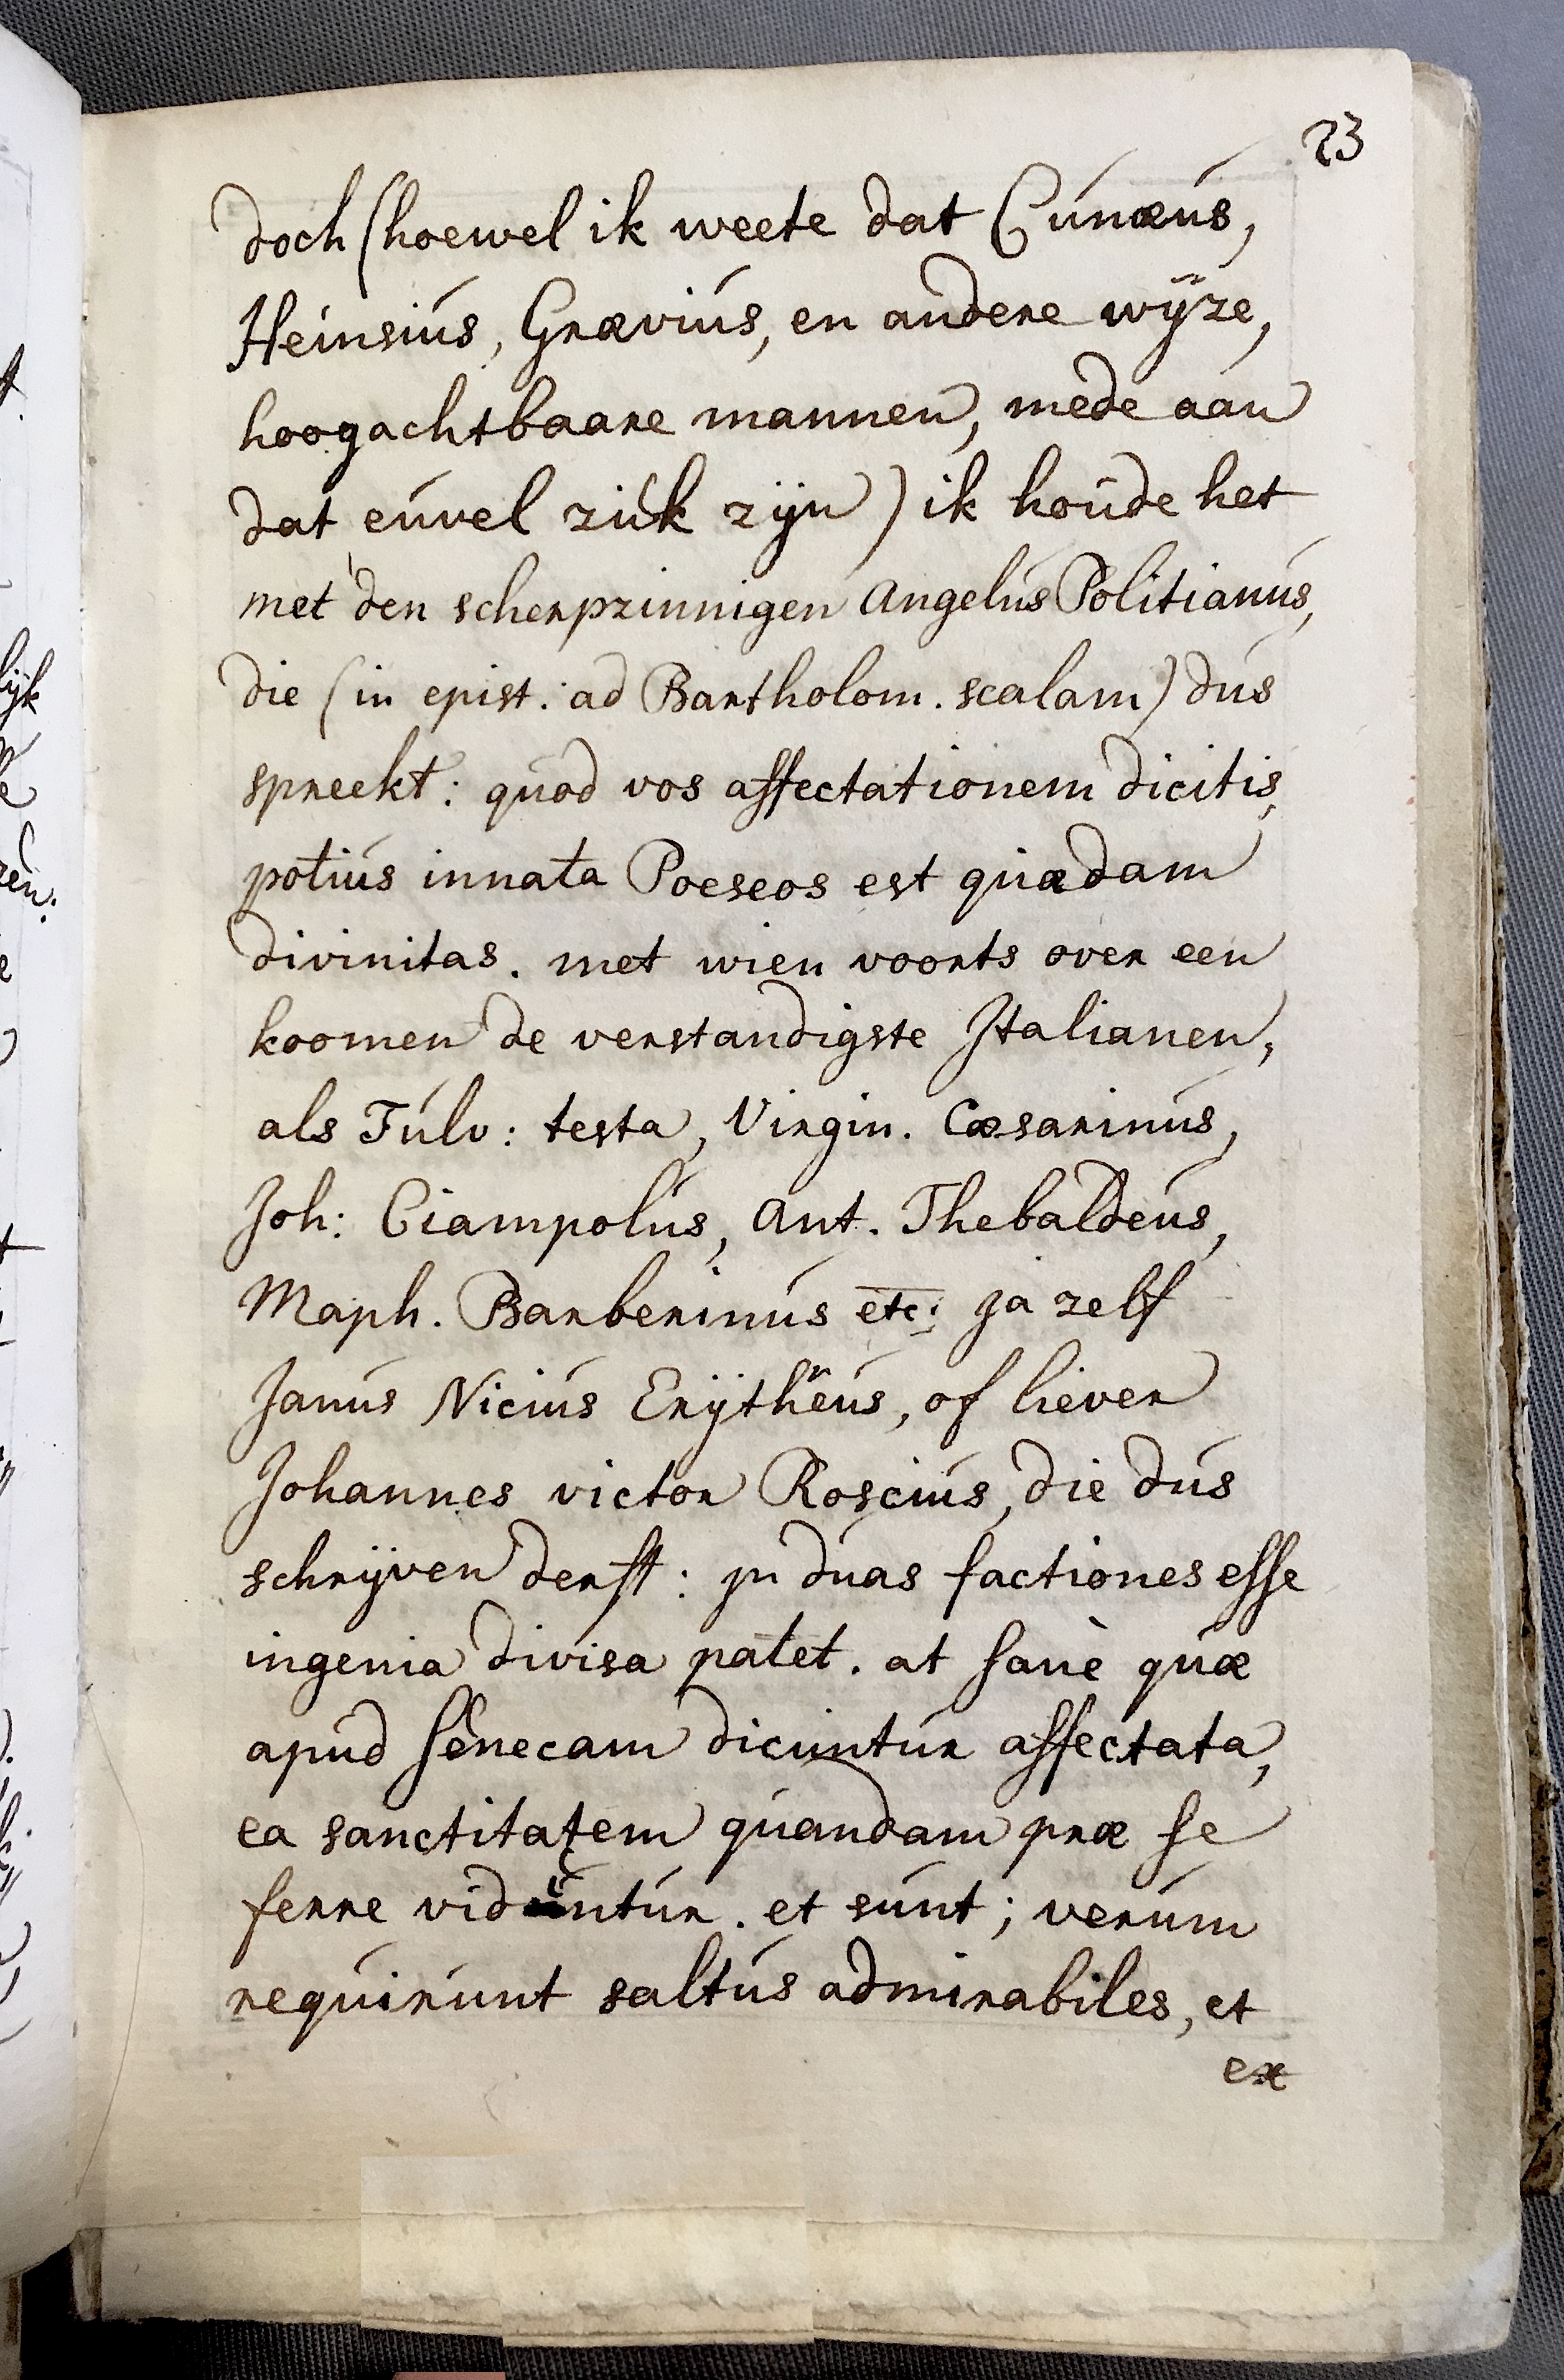 23
doch (hoewel ik weete dat Cunæus,
Heinsius, Grævius, en andere wyze,
hoogachtbaare mannen, mede aan
dat euvel ziek zyn) ik houde het
met den scherpzinnigen Angelus Politianus,
die (in epist. ad Bartholom. scalam) dus
spreekt: quod vos affectationem dicitis,
potius innata Poeseos est quædam
divinitas. met wien voorts over een
koomen de verstandigste Italianen,
als Fulv: testa, Virgin. Cæsarinus,
Joh: Ciampolus, Ant. Thebaldeus,
Maph. Barberinus etc: ja zelf
Janus Nicius Erÿthreus, of liever
Johannes victor Roscius, die dus
schrijven derft: in duas factiones esse
ingenia divisa patet. at sanè quæ
apud Senecam dicuntur affectata,
ea sanctitatem quandam præ se
ferre videntur. et sunt; verum
requirunt saltus admirabiles, et
ex